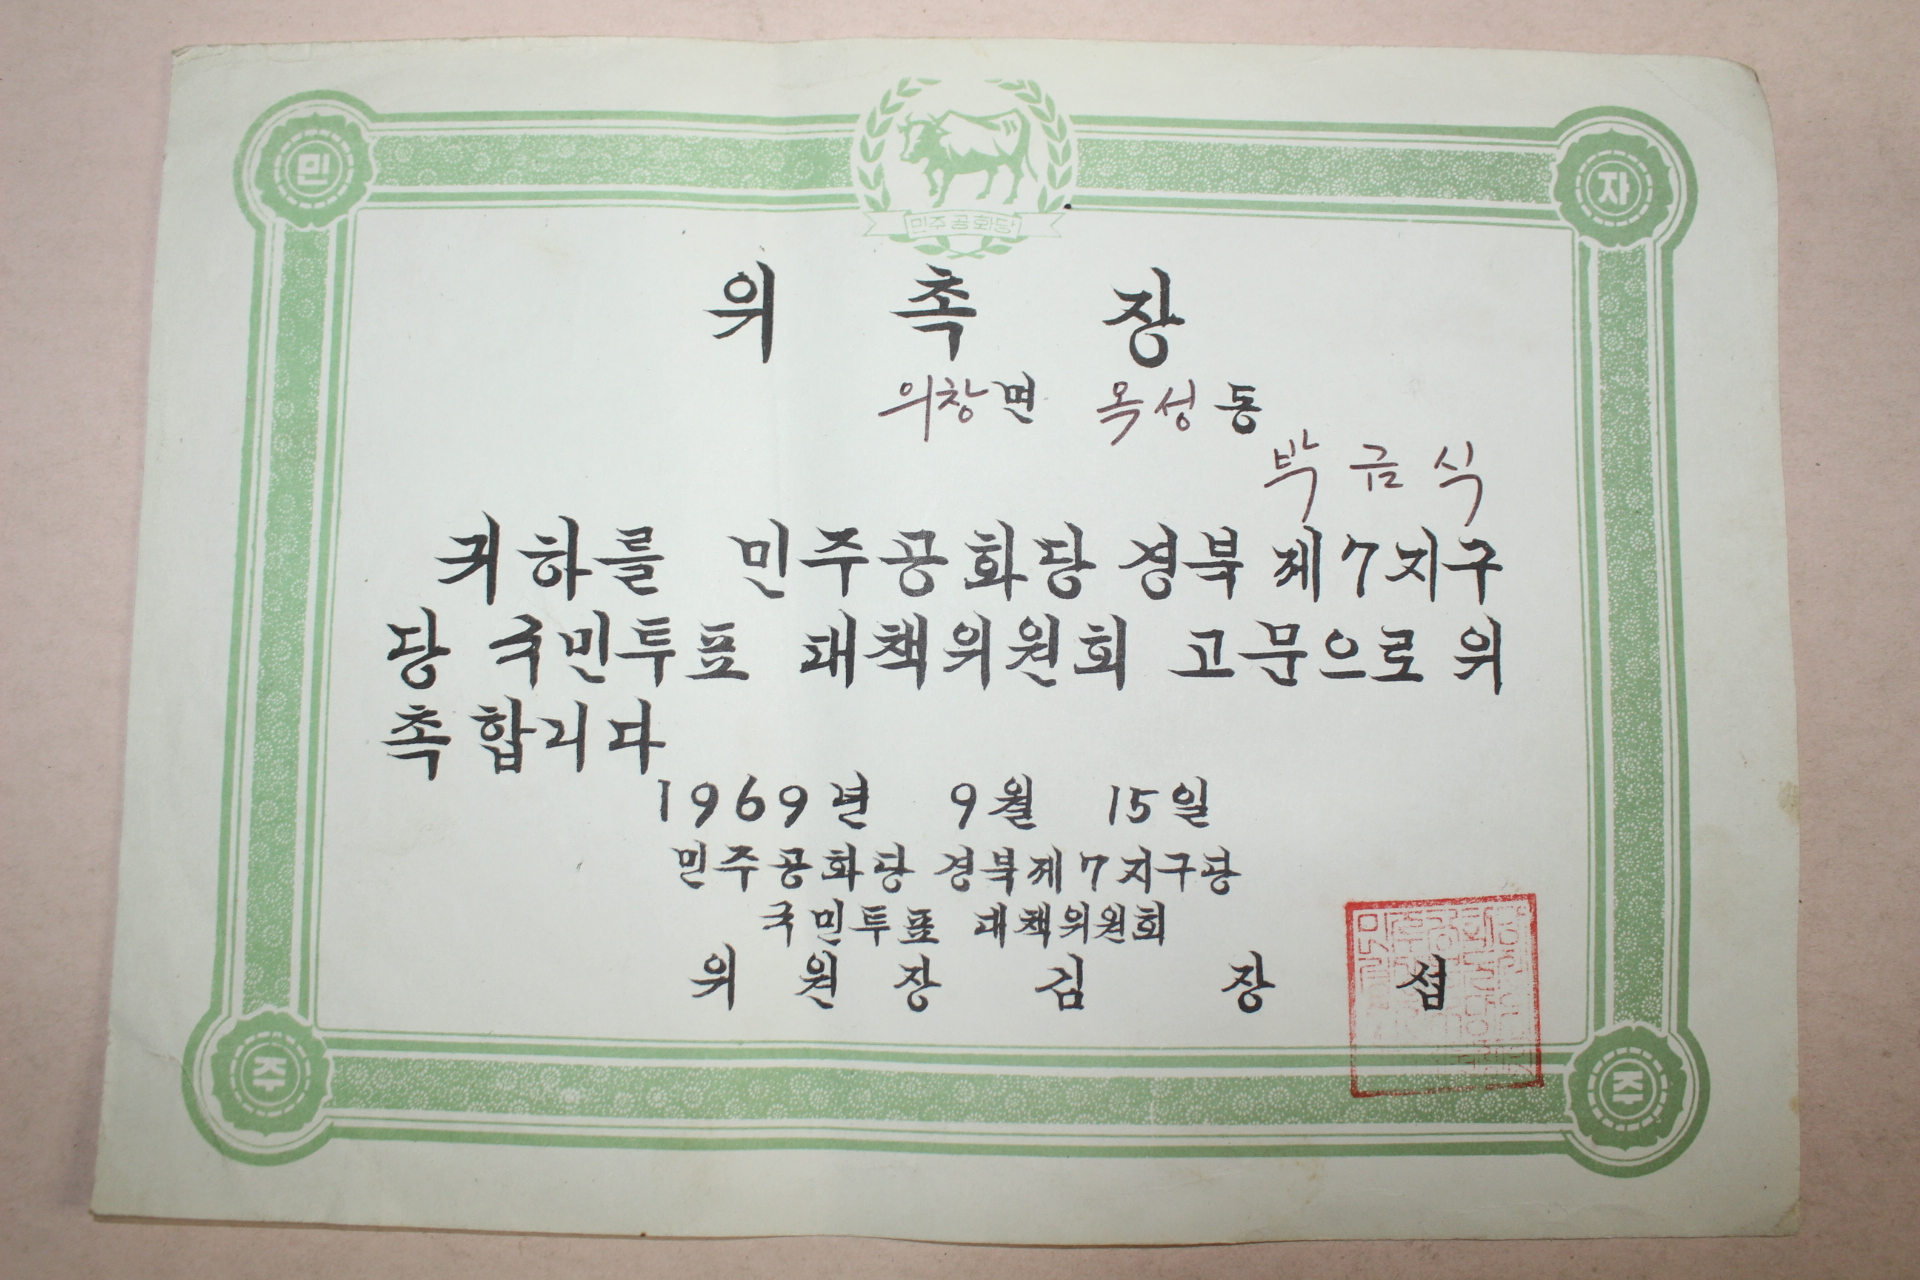 민
자
민주공화당
위 촉 장
의창면 옥성동
박금식
귀하를 민주공화당 경북 제7지구
당 국민투표 대책위원회 고문으로 위
촉합니다
1969년 9월 15일
민주공화당 경북제7지구당
국민투표 대책위원회
위 원 장 김 장 섭
주
주